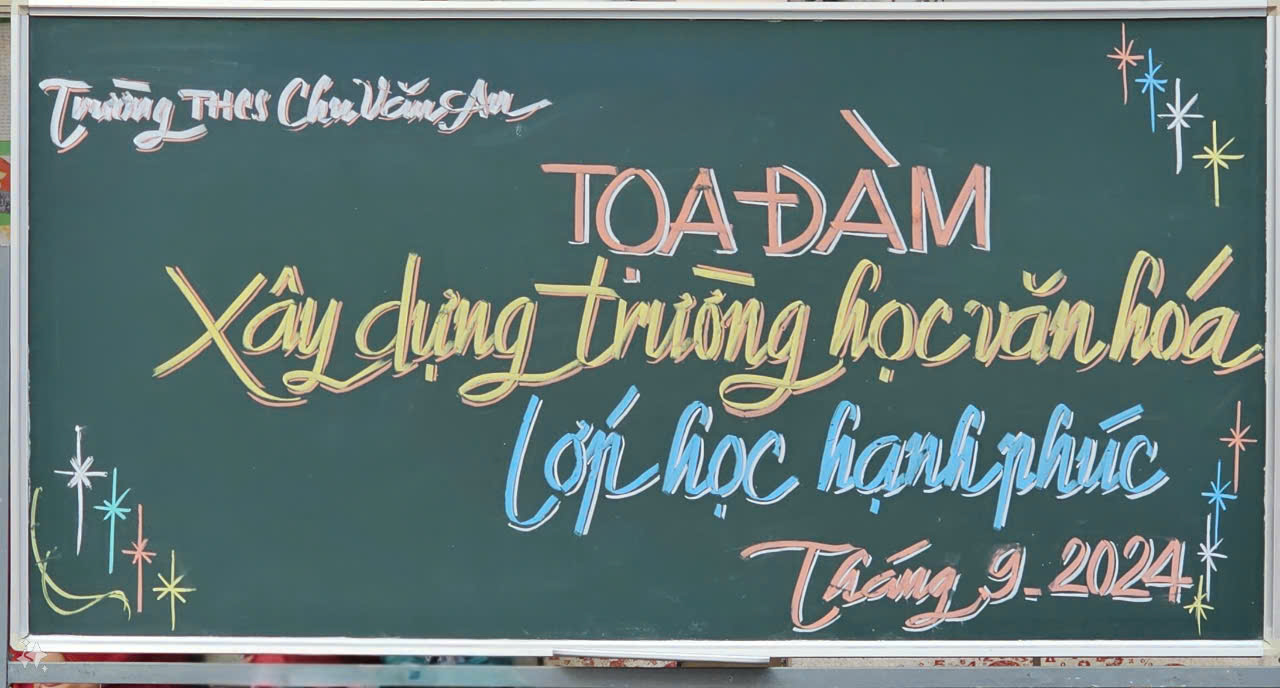 Trường THCS Chu Văn An
TỌA ĐÀM
Xây dựng trường học văn hóa
Lớp học hạnh phúc
Tháng 9_2024